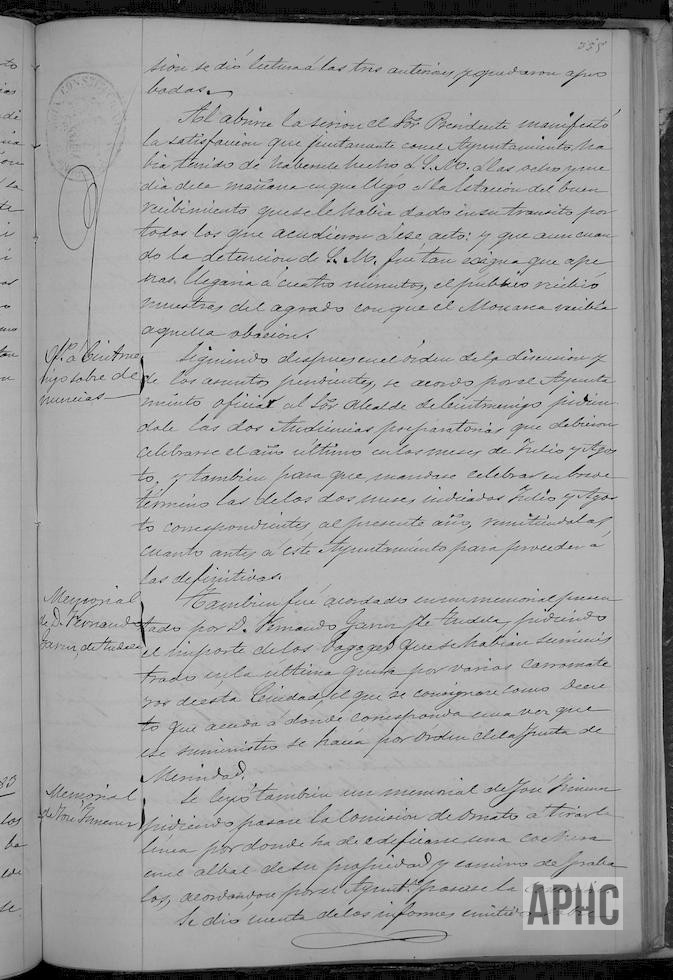 358
sion se dió lectura á las tres anteriores y quedaron apro
badas.
Al abrirse la sesion el Sor Presidente manifestó
la satisfaccion que juntamente con el Ayuntamiento ha
bia tenido de haberle hecho á S. M. á las ocho y me
dia de la mañana en que llegó á la Estación del buen
recibimiento que se le habia dado en su transito por
todos los que acudieron á ese acto: y que aun cuan
do la detencion de S. M. fué tan exigua que ape
nas llegaria á cuatro minutos, el publico recibió
muestras del agrado con que el Monarca recibia
aquella obacion.
Of.º á Cintrue
nigo sobre de
nuncias
Siguiendo despues en el órden de la discusion y
de los asuntos pendientes, se acordo por el Ayunta
miento oficiar al Sor Alcalde de Cintruenigo pidien
dole las dos Audiencias preparatorias que debieron
celebrarse el año último en los meses de Julio y Agos
to, y tambien para que mandase celebrar en breve
término las de los dos meses indicados Julio y Agos
to correspondientes al presente año, remitiendolas
cuanto antes á éste Ayuntamiento para proceder á
las definitivas.
Memorial
de D. Fernando
de Tudela
Tambien fué acordado en un memorial presen
tado por D. Fernando de Tudela, pidiendo
el importe de los bagages que se habian suminis
trado en la ultima guerra por varios carromate
ros de esta Ciudad, el que se consignase como decre
to que acuda á donde corresponda una vez que
ese suministro se hacia por orden de la Junta de
Merindad.
Memorial
de José Jimenez
Se leyó tambien un memorial de José Jimenez
pidiendo pasase la Comision de Ornato á tirarle
linea por donde ha de edificarse una cochera
en el albal de su propiedad y camino de Graba
los, acordandose por el Ayunt.º pasase la
Se dio cuenta de los informes emitidos
APHC